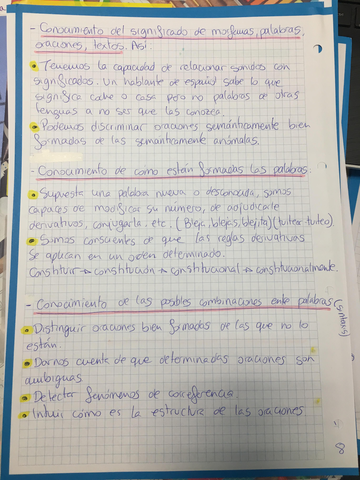 - Conocimiento del significado de morfemas, palabras,
oraciones, textos. Así:
Tenemos la capacidad de relacionar sonidos con
significados. Un hablante de español sabe lo que
significa coche o casa pero no palabras de otras
lenguas a no ser que las conozca.
Podemos discriminar oraciones semánticamente bien
formadas de las semánticamente anómalas.
- Conocimiento de como están formadas las palabras.
Supuesta una palabra nueva o desconocida, somos
capaces de modificar su número, de adjudicarle
derivativos, conjugarla, etc. (Bleje, blejes, blejita) (tuitear, tuiteo)
Somos conscientes de que las reglas derivativas
se aplican en un orden determinado.
Constituir → constitución → constitucional → constitucionalmente.
- Conocimiento de las posibles combinaciones entre palabras (sintaxis)
Distinguir oraciones bien formadas de las que no lo
están.
Darnos cuenta de que determinadas oraciones son
ambiguas
Detectar fenómenos de correferencia.
Intuir cómo es la estructura de las oraciones
8